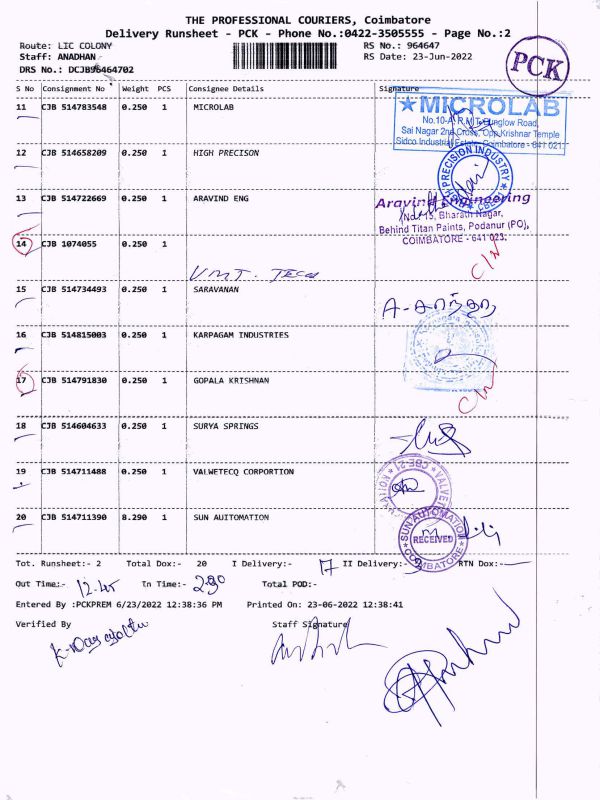 THE PROFESSIONAL COURIERS, Coimbatore
Delivery Runsheet - PCK - Phone No.:0422-3505555 - Page No.:2
Route: LIC COLONY RS No.: 964647
Staff: ANADHAN RS Date: 23-Jun-2022
DRS No.: DCJB96464702
PCK
S No Consignment No Weight PCS Consignee Details Signature
11 CJB 514783548 0.250 1 MICROLAB
★ MICROLAB
Sai Nagar 2nd Cross, Opp.Krishnar Temple
Sidco Industrial Estate, Coimbatore - 641 021.
12 CJB 514658209 0.250 1 HIGH PRECISON
HIGH PRECISION INDUSTRY
13 CJB 514722669 0.250 1 ARAVIND ENG
Aravind Engineering
No. 15, Bharath Nagar,
Behind Titan Paints, Podanur (PO),
COIMBATORE - 641 023.
14 CJB 1074055 0.250 1
VMT. TECH
C/N
15 CJB 514734493 0.250 1 SARAVANAN
16 CJB 514815003 0.250 1 KARPAGAM INDUSTRIES
17 CJB 514791830 0.250 1 GOPALA KRISHNAN
C/N
18 CJB 514604633 0.250 1 SURYA SPRINGS
19 CJB 514711488 0.250 1 VALWETECQ CORPORTION
20 CJB 514711390 8.290 1 SUN AUITOMATION
SUN AUTOMATION
RECEIVED
COIMBATORE
Tot. Runsheet:- 2 Total Dox:- 20 I Delivery:- 17 II Delivery:- RTN Dox:-
Out Time:- 12.45 In Time:- 2.90 Total POD:-
Entered By :PCKPREM 6/23/2022 12:38:36 PM Printed On: 23-06-2022 12:38:41
Verified By Staff Signature